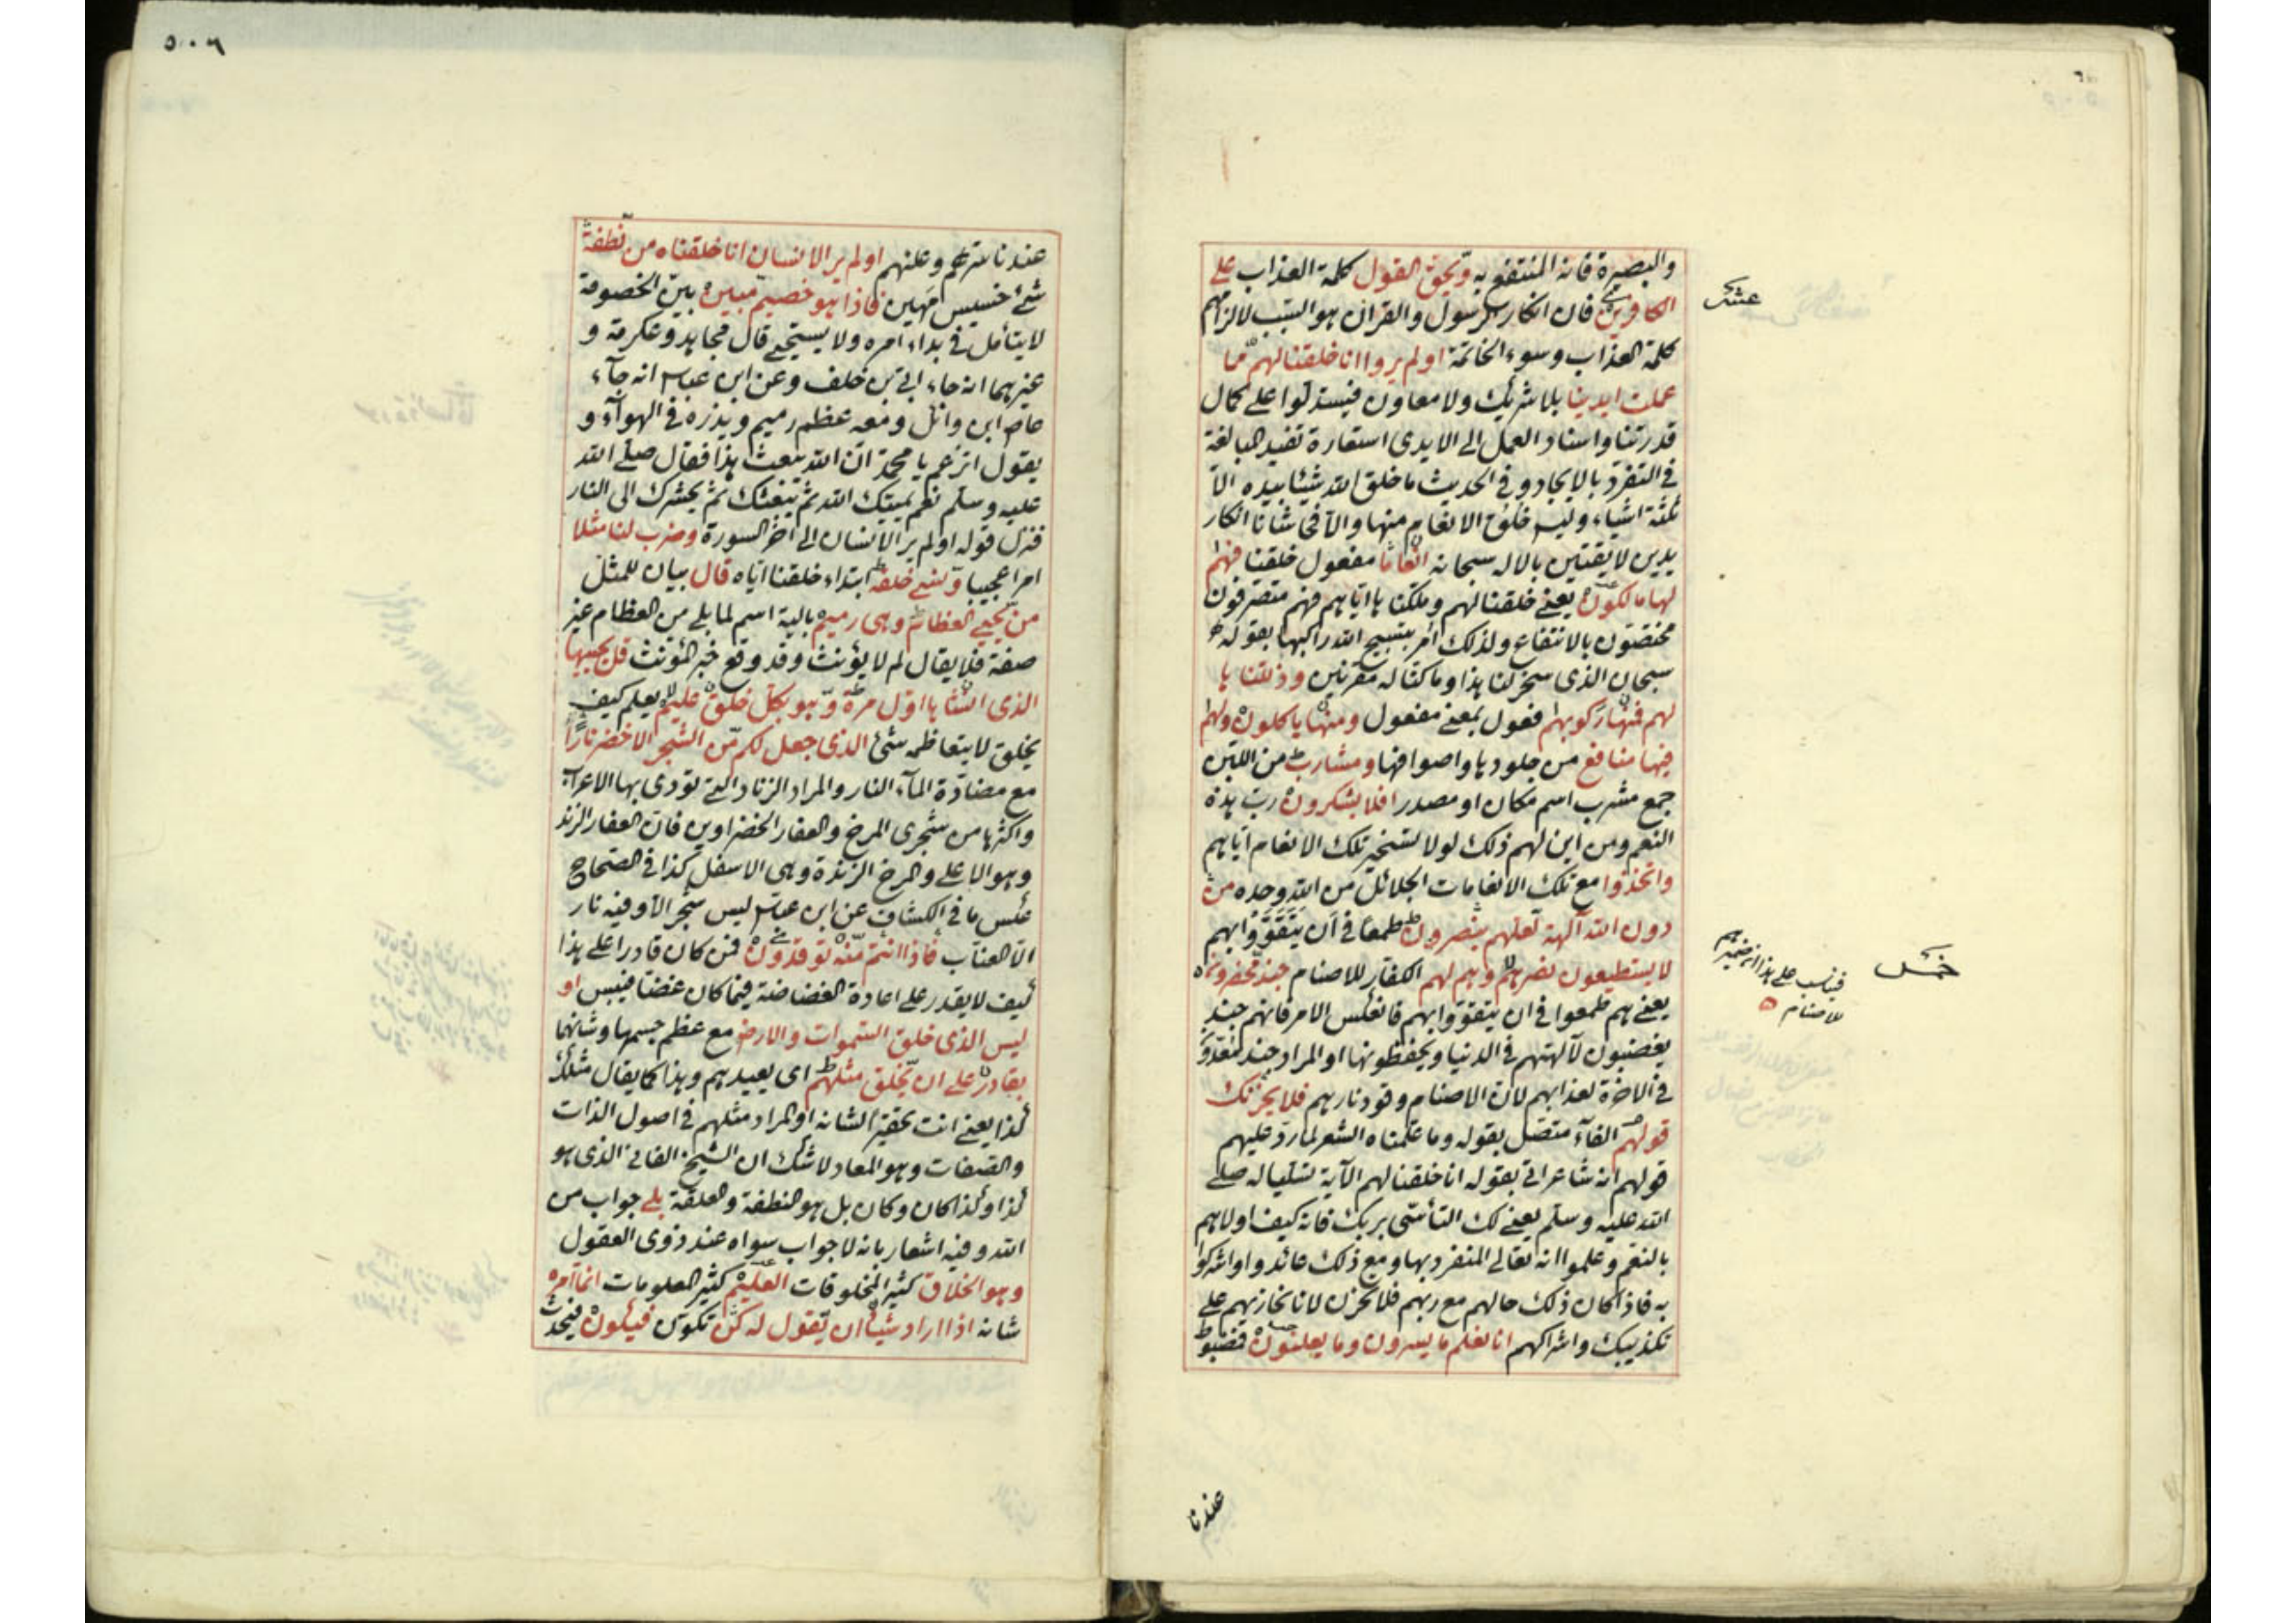 والبصيرة فانه المنتفع به ويحق القول كلمة العذاب على
الكافرين فان انكار الرسول والقرآن هو السبب لالزامهم
كلمة العذاب وسوء الخاتمة اولم يروا انا خلقنا لهم مما
عملت ايدينا بلا شريك ولا معاون فيستدلوا على كمال
قدرتنا واسناد العمل الى الايدى استعارة تفيد المبالغة
فى التفرد بالايجاد وفى الحديث ما خلق الله شيئا بيده الا
ثلثة اشياء وليس خلق الانعام منها والآفى شاننا انكار
يدين لايقتين بالاله سبحانه انعاما مفعول خلقنا فهم
لها مالكون يعنى خلقنا لهم وملكنا ها اياهم فهم متصرفون
مختصون بالانتفاع ولذلك امر بتسبيح الله راكبها بقوله
سبحان الذى سخر لنا هذا وما كنا له مقرنين وذللنا ها
لهم فمنها ركوبهم فعول بمعنى مفعول ومنها ياكلون ولهم
فيها منافع من جلودها واصوافها ومشارب من اللبن
جمع مشرب اسم مكان او مصدر افلا يشكرون رب هذه
النعم ومن اين لهم ذلك لولا تسخير تلك الانعام اياهم
واتخذوا مع تلك الانعامات الجلائل من الله وحده من
دون الله آلهة لعلهم ينصرون طمعا فى ان يتقووا بهم
لا يستطيعون نصرهم وهم لهم الكفار للاصنام جند محضرون
يعنى هم طمعوا فى ان يتقووا بهم فانعكس الامر فانهم جند
يغضبون لآلهتهم فى الدنيا ويحفظونها او المراد جند معدو
فى الاخرة لعذابهم لان الاصنام وقود نارهم فلا يحزنك
قولهم الفاء متصل بقوله وما علمناه الشعر لما رد عليهم
قولهم انه شاعر اتى بقوله انا خلقنا لهم الآية تسليا له صلى
الله عليه وسلم يعنى لك التأسى بربك فانه كيف اولاهم
بالنعم وعلموا انه تعالى المنفرد بها ومع ذلك عاندوا واشركوا
به فاذا كان ذلك حالهم مع ربهم فلا تحزن لانا نجازيهم على
تكذيبك واشراكهم انا نعلم ما يسرون وما يعلنون فمضبوط
عشر
خمس
فيناسب على هذا ان ضميرهم
للاصنام
عندنا
٥٠٦
عندنا سرهم وعلنهم اولم ير الانسان انا خلقناه من نطفة
شئ خسيس مهين فاذا هو خصيم مبين بين الخصومة
لا يتأمل فى بداء امره ولا يستحيى قال مجاهد وعكرمة و
غيرهما انه جاء ابى بن خلف وعن ابن عباس انه جاء
عاص ابن وائل ومعه عظم رميم ويذره فى الهواء و
يقول اتزعم يا محمد ان الله يبعث هذا فقال صلى الله
عليه وسلم نعم يميتك الله ثم يبعثك ثم يحشرك الى النار
فنزل قوله اولم ير الانسان الى آخر السورة وضرب لنا مثلا
امرا عجيبا ونسى خلقه ابتداء خلقنا اياه قال بيان للمثل
من يحيى العظام وهى رميم بالية اسم لما بلى من العظام غير
صفة فلا يقال لم لا يؤنث وقد وقع خبر المؤنث قل يحييها
الذى انشأها اول مرة وهو بكل خلق عليم يعلم كيف
يخلق لا يتعاظمه شئ الذى جعل لكم من الشجر الاخضر نارا
مع مضادة الماء النار والمراد الزناد التى تورى بها الاعراب
واكثرها من شجرى المرخ والعفار الخضراوين فان العفار الزند
وهو الاعلى والمرخ الزندة وهى الاسفل كذا فى الصحاح
عكس ما فى الكشاف عن ابن عباس ليس شجر الا وفيه نار
الا العناب فاذا انتم منه توقدون فمن كان قادرا على هذا
كيف لا يقدر على اعادة الغضاضة فيما كان غضا فيبس او
ليس الذى خلق السموات والارض مع عظم جسمها وشانهما
بقادر على ان يخلق مثلهم اى يعيدهم وهذا كما يقال مثلك
كذا يعنى انت تحقيرا لشانه او المراد مثلهم فى اصول الذات
والصفات وهو المعاد لا شك ان الشيخ الفانى الذى هو
كذا وكذا كان وكان بل هو النطفة والعلقة بلى جواب من
الله وفيه اشعار بانه لا جواب سواه عند ذوى العقول
وهو الخلاق كثير المخلوقات العليم كثير المعلومات انما امره
شانه اذا اراد شيئا ان يقول له كن تكون فيكون فيحدث